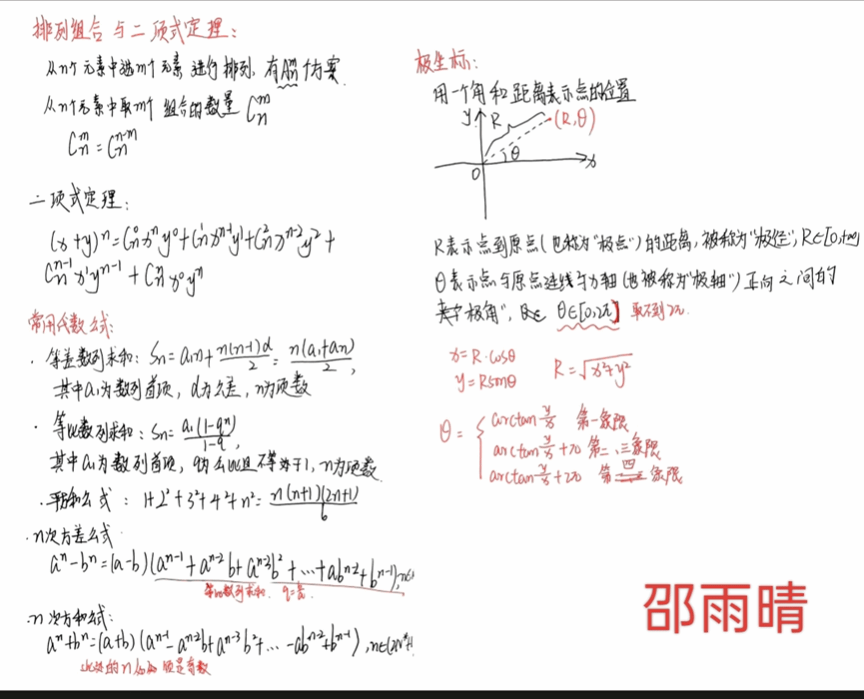 排列组合与二项式定理:
从n个元素中选m个元素进行排列,有Aₙᵐ个方案
从n个元素中取m个 组合的数量 Cₙᵐ
Cₙᵐ = Cₙⁿ⁻ᵐ
二项式定理:
(x+y)ⁿ=Cₙ⁰xⁿy⁰+Cₙ¹xⁿ⁻¹y¹+Cₙ²xⁿ⁻²y²+
Cₙⁿ⁻¹x¹yⁿ⁻¹+Cₙⁿx⁰yⁿ
常用代数公式:
· 等差数列求和: Sn=a₁n+n(n-1)d/2=n(a₁+an)/2,
其中a₁为数列首项,d为公差,n为项数
· 等比数列求和: Sn=a₁(1-qⁿ)/1-q,
其中a₁为数列首项,q为公比且不等于1,n为项数
· 平方和公式: 1+2²+3²+4²+n²=n(n+1)(2n+1)/6
·n次方差公式
aⁿ-bⁿ=(a-b)(aⁿ⁻¹+aⁿ⁻²b+aⁿ⁻³b²+…+abⁿ⁻²+bⁿ⁻¹),
等比数列求和 q=
·n次方和公式:
aⁿ+bⁿ=(a+b)(aⁿ⁻¹-aⁿ⁻²b+aⁿ⁻³b²+…-abⁿ⁻²+bⁿ⁻¹),
的n 须是奇数
极坐标:
用一个角和距离表示点的位置
y
R
(R,θ)
θ
x
0
R表示点到原点(也称为"极点")的距离,被称为"极径",R∈[0,+∞)
θ表示点与原点连线与x轴(也被称为"极轴")正向之间的
极角", θ∈[0,2π] 取不到2π
x=R·cosθ
y=Rsinθ
R=√x²+y²
θ=
arctan y/x 第一象限
arctan y/x+π 第二、三象限
arctan y/x+2π 第四象限
邵雨晴